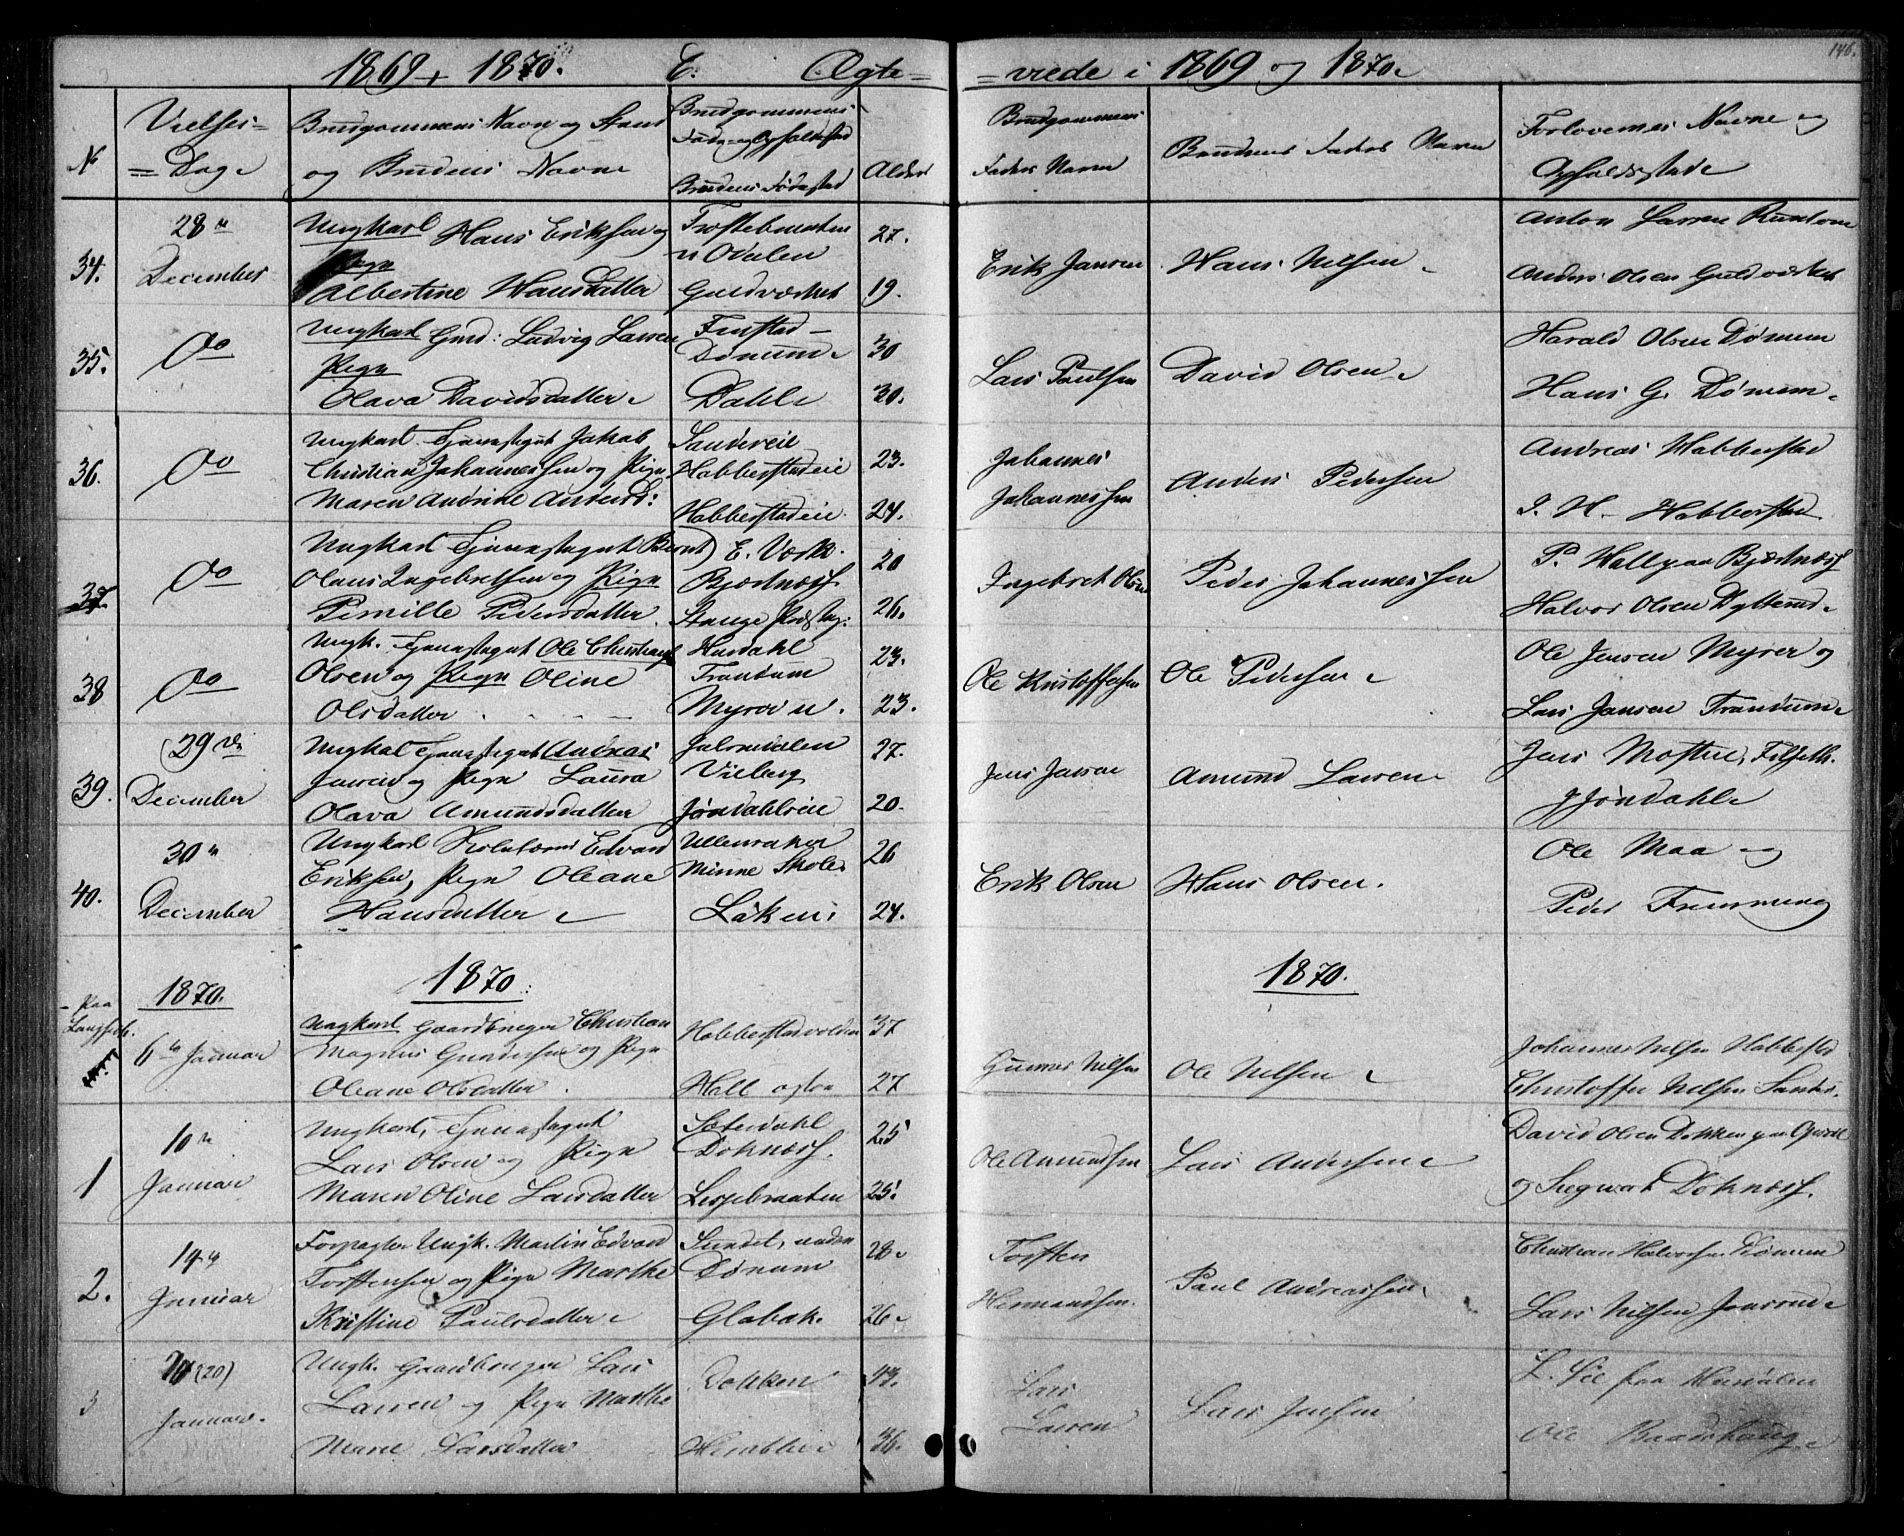 146.
1869 + 1870. E. Ægte= =viede i 1869 og 1870.
N Vielses= =Dage
Brudgommens Navn og Stand og Brudens Navne
Brudgommens Føde- og Opholdsstad
Brudens Fødestad
Alder
Brudgommens Faders Navn
Brudens Faders Navn
Forlovernes Navne og Opholdsstade
34. 28de December
Ungkarl Hans Eriksen og
Pige
Albertine Hansdatter
Guldværket
27.
19.
Erik Jansen
Hans Nilsen
Anton Larsen
Anders Olsen Guldværket
35. Do
Ungkarl Gmd: Ludvig Larsen
Pige
Olava Davidsdatter
Finstad
Dønnum
Dahl
30
30.
Lars Paulsen
David Olsen
Harald Olsen Dønnum
Hans G. Dønnum
36. Do
Ungkarl Tjenestegut Jakob
Christian Johannessen og Pige
Maren Andrine Andersd:
Sandereie
Habberstadeie
Habberstadeie
23.
24.
Johannes
Johannessen
Anders Pedersen
Andreas Habberstad
J. H. Habberstad
37. Do
Ungkarl Tjenestegut Bernt
Olaus Ingebretsen og Pige
Pernille Pedersdatter
E. Værk.
Bjørtnæss
Stange Præstegj:
20
26.
Ingebret Olsen
Peder Johannessen
P. Hall paa Bjørtnæss
Halvor Olsen Dytterud
38 Do
Ungk. Tjenestegut Ole Christian
Olsen og Pige Oline
Olsdatter
Hurdahl
Trandum
Myrer
23.
23.
Ole Kristoffersen
Ole Pedersen
Ole Jensen Myrer og
Lars Jansen Trandum
39. 29de December
Ungkarl Tjenestegut Andreas
Jensen og Pige Laura
Olava Amundsdatter
Vilberg
Jøndahlseie
27.
20.
Jens Jansen
Amund Larsen
Jens Mostue,
Jøndahl
40. 30te December
Ungkarl Edvard
Eriksen, Pige Oleane
Hansdatter
Ullensaker
Minne Skole
Løken
26
24.
Erik Olsen
Hans Olsen.
Ole Maa og
Peder Fremming
1870. 1870. 1870.
Paa
6te Januar
Ungkarl Gaardbruger Christian
Magnus Gundersen og Pige
Oleane Olsdatter
Habberstadvolden
Hall
37
27
Gunnar Nilsen
Ole Nilsen
Johannes Nilsen Habberstad
Christoffer Nilsen
1 10de Januar
Ungkarl, Tjenestegut
Lars Olsen og Pige
Maren Oline Larsdatter
Sæterdahl
Doknæss.
Lispebraaten
25
25.
Ole Amundsen
Lars Andersen
David Olsen Dokken
og Siegwart Doknæss.
2. 14de Januar
Forpagter Ungk. Martin Edvard
Torstensen og Pige Marthe
Kristine Paulsdatter
Sundet, under
Dønnum
Globak.
28
26
Torsten
Hermandsen.
Paul Andreassen
Christian Halvorsen Dønnum
Lars Nilsen Jonsrud
3 (20) Januar.
Ungk. Gaardbruger Lars
Larsen og Pige Marthe
Marie Larsdatter
Dokken
43.
36.
Lars
Larsen
Lars Jensen
Ole Baadshaug